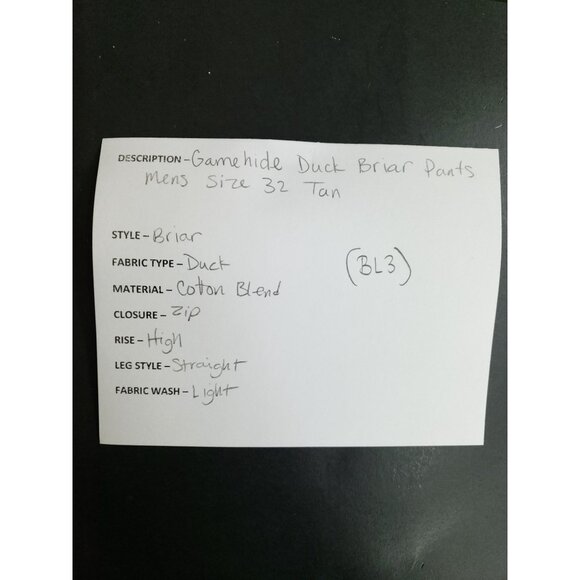 DESCRIPTION - Gamehide Duck Briar Pants
Mens Size 32 Tan
STYLE - Briar
FABRIC TYPE - Duck
(BL3)
MATERIAL - Cotton Blend
CLOSURE - Zip
RISE - High
LEG STYLE - Straight
FABRIC WASH - Light